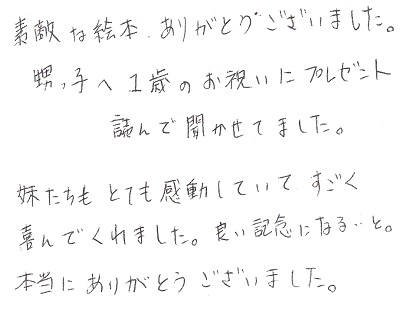 素敵な絵本、ありがとうございました。
甥っ子へ1歳のお祝いにプレゼント
読んで聞かせてました。
妹たちもとても感動していて すごく
喜んでくれました。良い記念になる…と。
本当にありがとうございました。